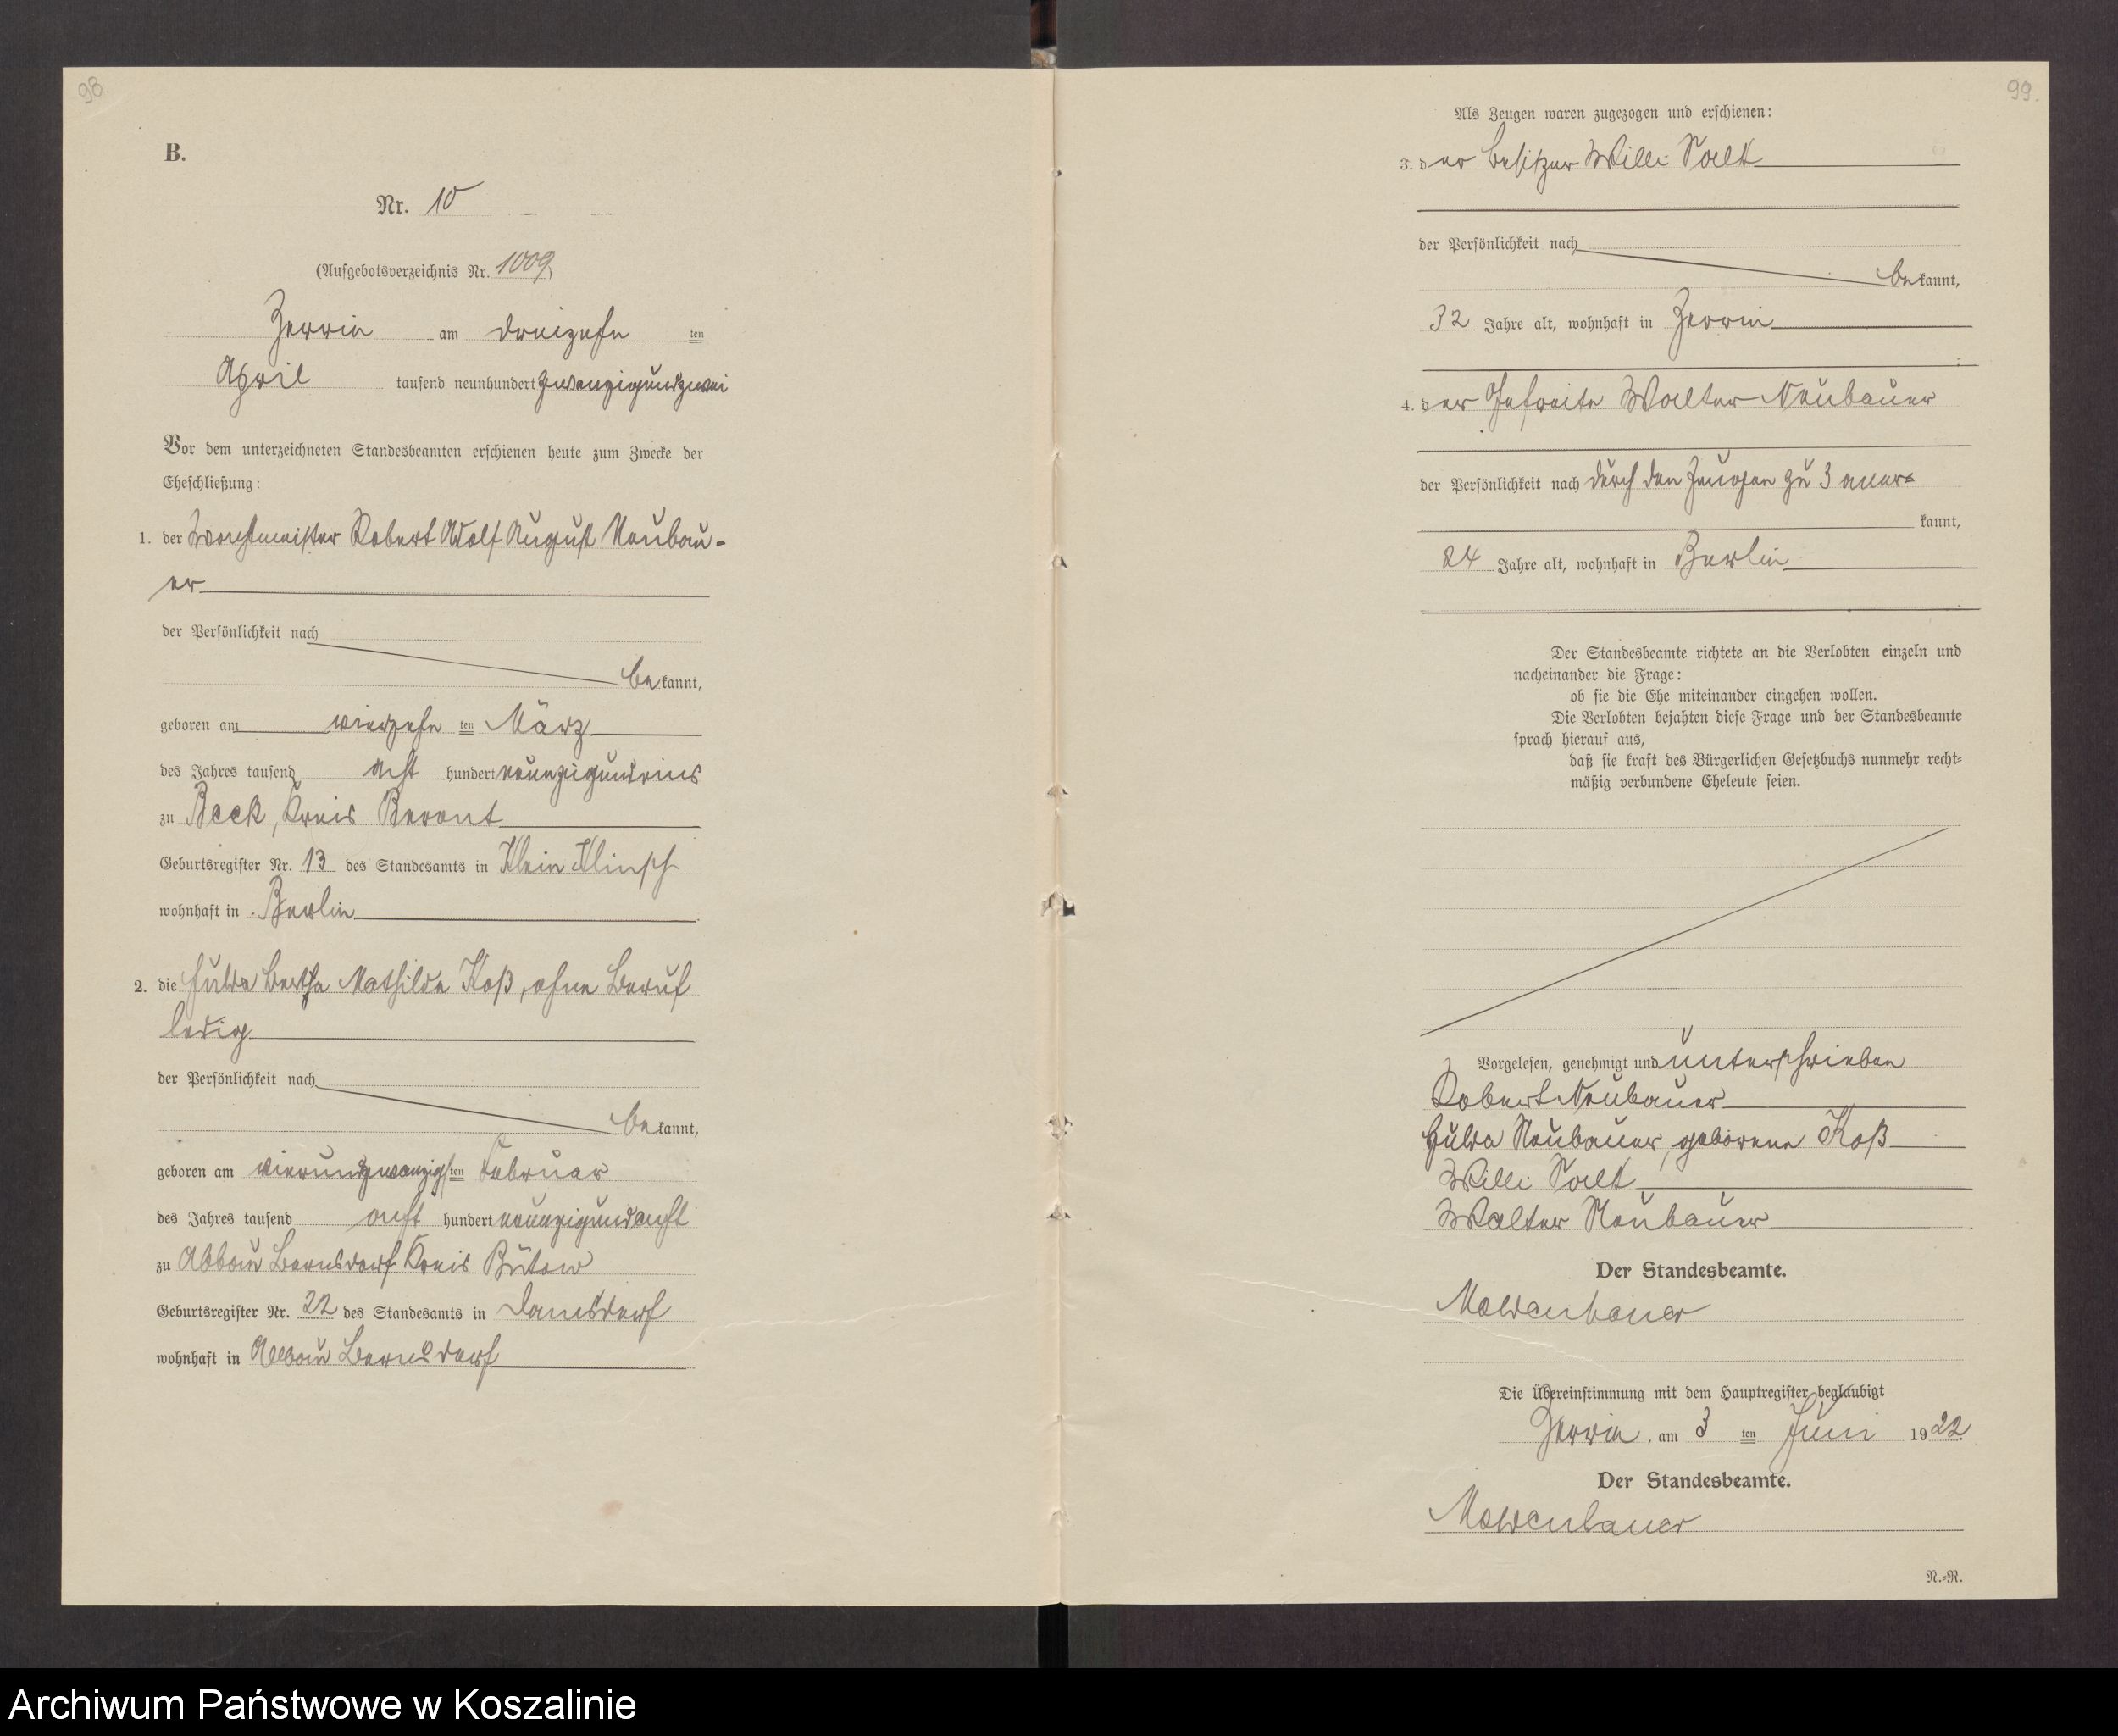 98.
B.
Nr. 10
(Aufgebotsverzeichnis Nr. 1009)
Zerrin am dreizehn ten
April tausend neunhundert zwanzigundzwei
Vor dem unterzeichneten Standesbeamten erschienen heute zum Zwecke der
Eheschließung:
1. der Wachtmeister Robert Adolf August Neubau-
er
der Persönlichkeit nach
be kannt,
geboren am vierzehn ten März
des Jahres tausend acht hundert neunzigundeins
zu Beek, Kreis Berent
Geburtsregister Nr. 13 des Standesamts in Klein Klinsch
wohnhaft in Berlin
2. die Hulda Bertha Mathilde Koß, ohne Beruf
ledig
der Persönlichkeit nach
be kannt,
geboren am vierundzwanzigsten Februar
des Jahres tausend acht hundert neunzigundacht
zu Abbau Bernsdorf Kreis Bütow
Geburtsregister Nr. 22 des Standesamts in Damsdorf
wohnhaft in Abbau Bernsdorf
99.
Als Zeugen waren zugezogen und erschienen:
3. der Besitzer Willi
der Persönlichkeit nach
be kannt,
32 Jahre alt, wohnhaft in Zerrin
4. der Gefreite Walter Neubauer
der Persönlichkeit nach durch den Zeugen zu 3 aner=
kannt,
24 Jahre alt, wohnhaft in Berlin
Der Standesbeamte richtete an die Verlobten einzeln und
nacheinander die Frage:
ob sie die Ehe miteinander eingehen wollen.
Die Verlobten bejahten diese Frage und der Standesbeamte
sprach hierauf aus,
daß sie kraft des Bürgerlichen Gesetzbuchs nunmehr recht=
mäßig verbundene Eheleute seien.
Vorgelesen, genehmigt und unterschrieben
Robert Neubauer
Hulda Neubauer, geborene Koß
Willi
Walter Neubauer
Der Standesbeamte.
Moldenhauer
Die Übereinstimmung mit dem Hauptregister beglaubigt
Zerrin, am 3 ten Juni 1922
Der Standesbeamte.
Moldenhauer
N.=R.
Archiwum Państwowe w Koszalinie